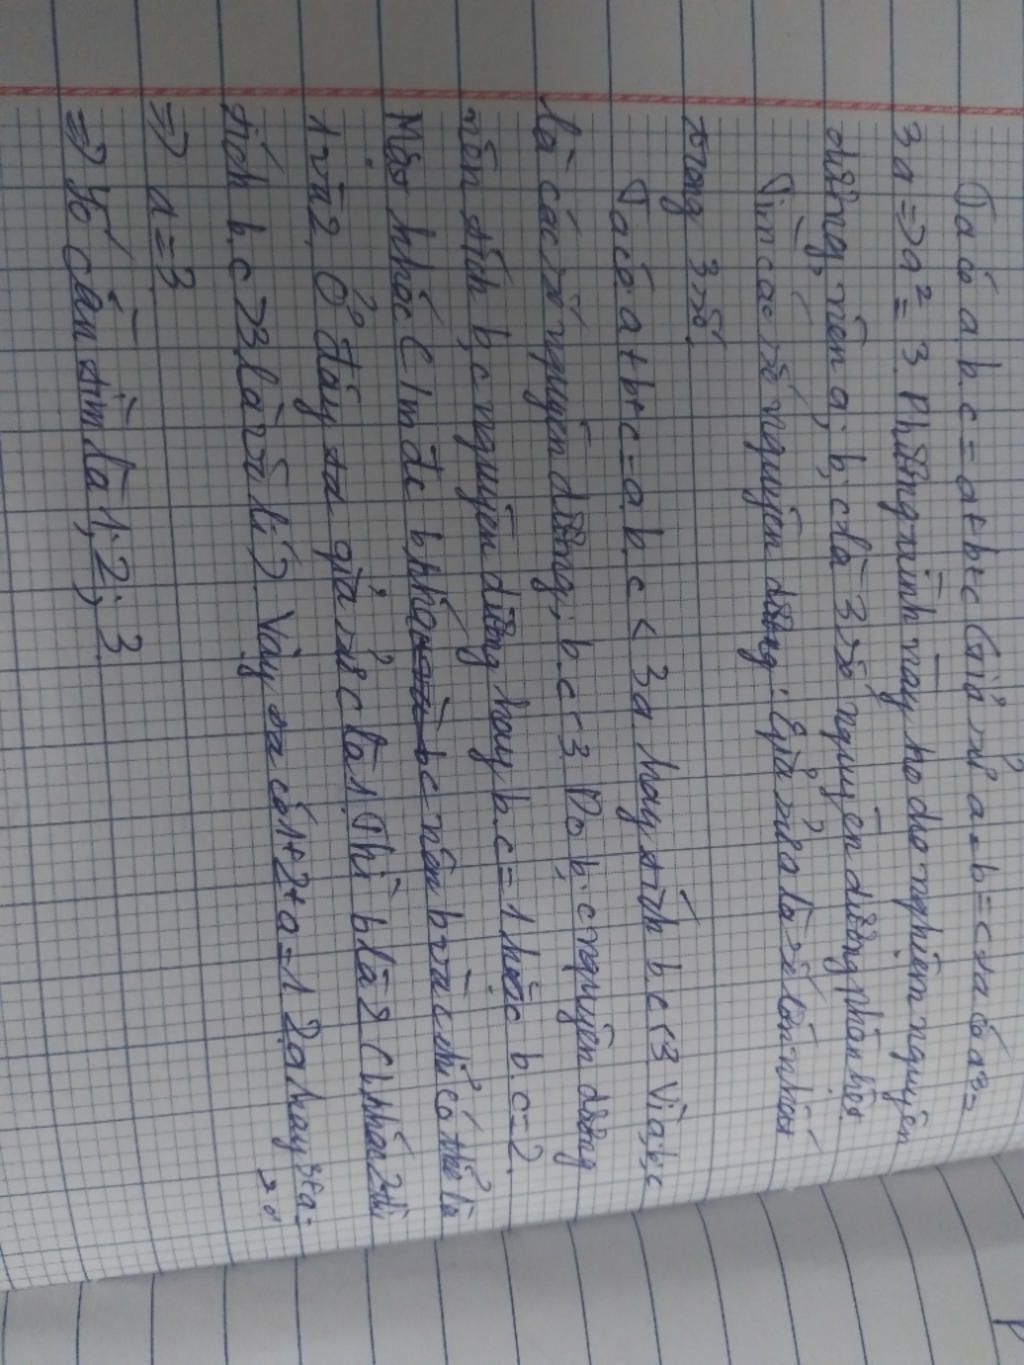 Ta có a.b.c = a+b+c Giả sử a=b=c ta có a³=
3a => a² = 3. Phương trình này ko có nghiệm nguyên
dương, nên a; b; c là 3 số nguyên dương phân biệt
Tìm các số nguyên dương: Giả sử a là số lớn nhất
trong 3 số.
Ta có: a+b+c=a.b.c < 3a hay tích b.c<3 Vì a,b,c
là các số nguyên dương; b.c<3. Do b; c nguyên dương
nên tích b,c nguyên dương hay b.c=1 hoặc b.c=2.
Mặt khác c nên b và c chỉ có thể là
1 và 2. Ở đây ta giả sử c là 1. Thì b là 2 (khác 2 thì
tích b.c >3 là vô lí). Vậy ta có 1+2+a=1.2.a hay 3+a=
2a
=> a=3
=> 3 số cần tìm là 1; 2; 3